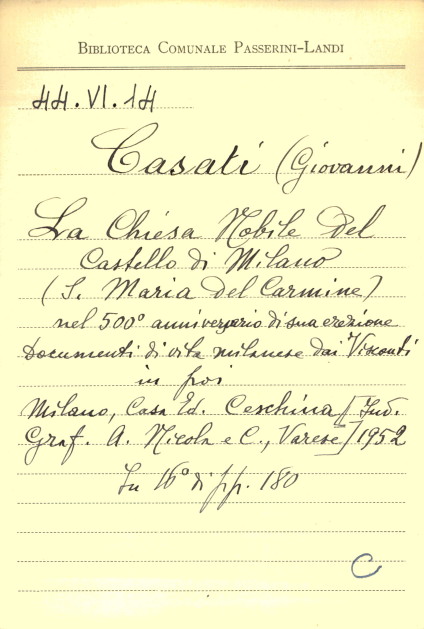 BIBLIOTECA COMUNALE PASSERINI-LANDI
44.VI.14
Casati (Giovanni)
La Chiesa Nobile del
Castello di Milano
(S. Maria del Carmine)
nel 500° anniversario di sua erezione
Documenti di vita milanese dai Visconti
in poi
Milano, Casa Ed. Ceschina [Ind.
Graf. A. Nicola e C., Varese] 1952
In 16° di pp. 180
C